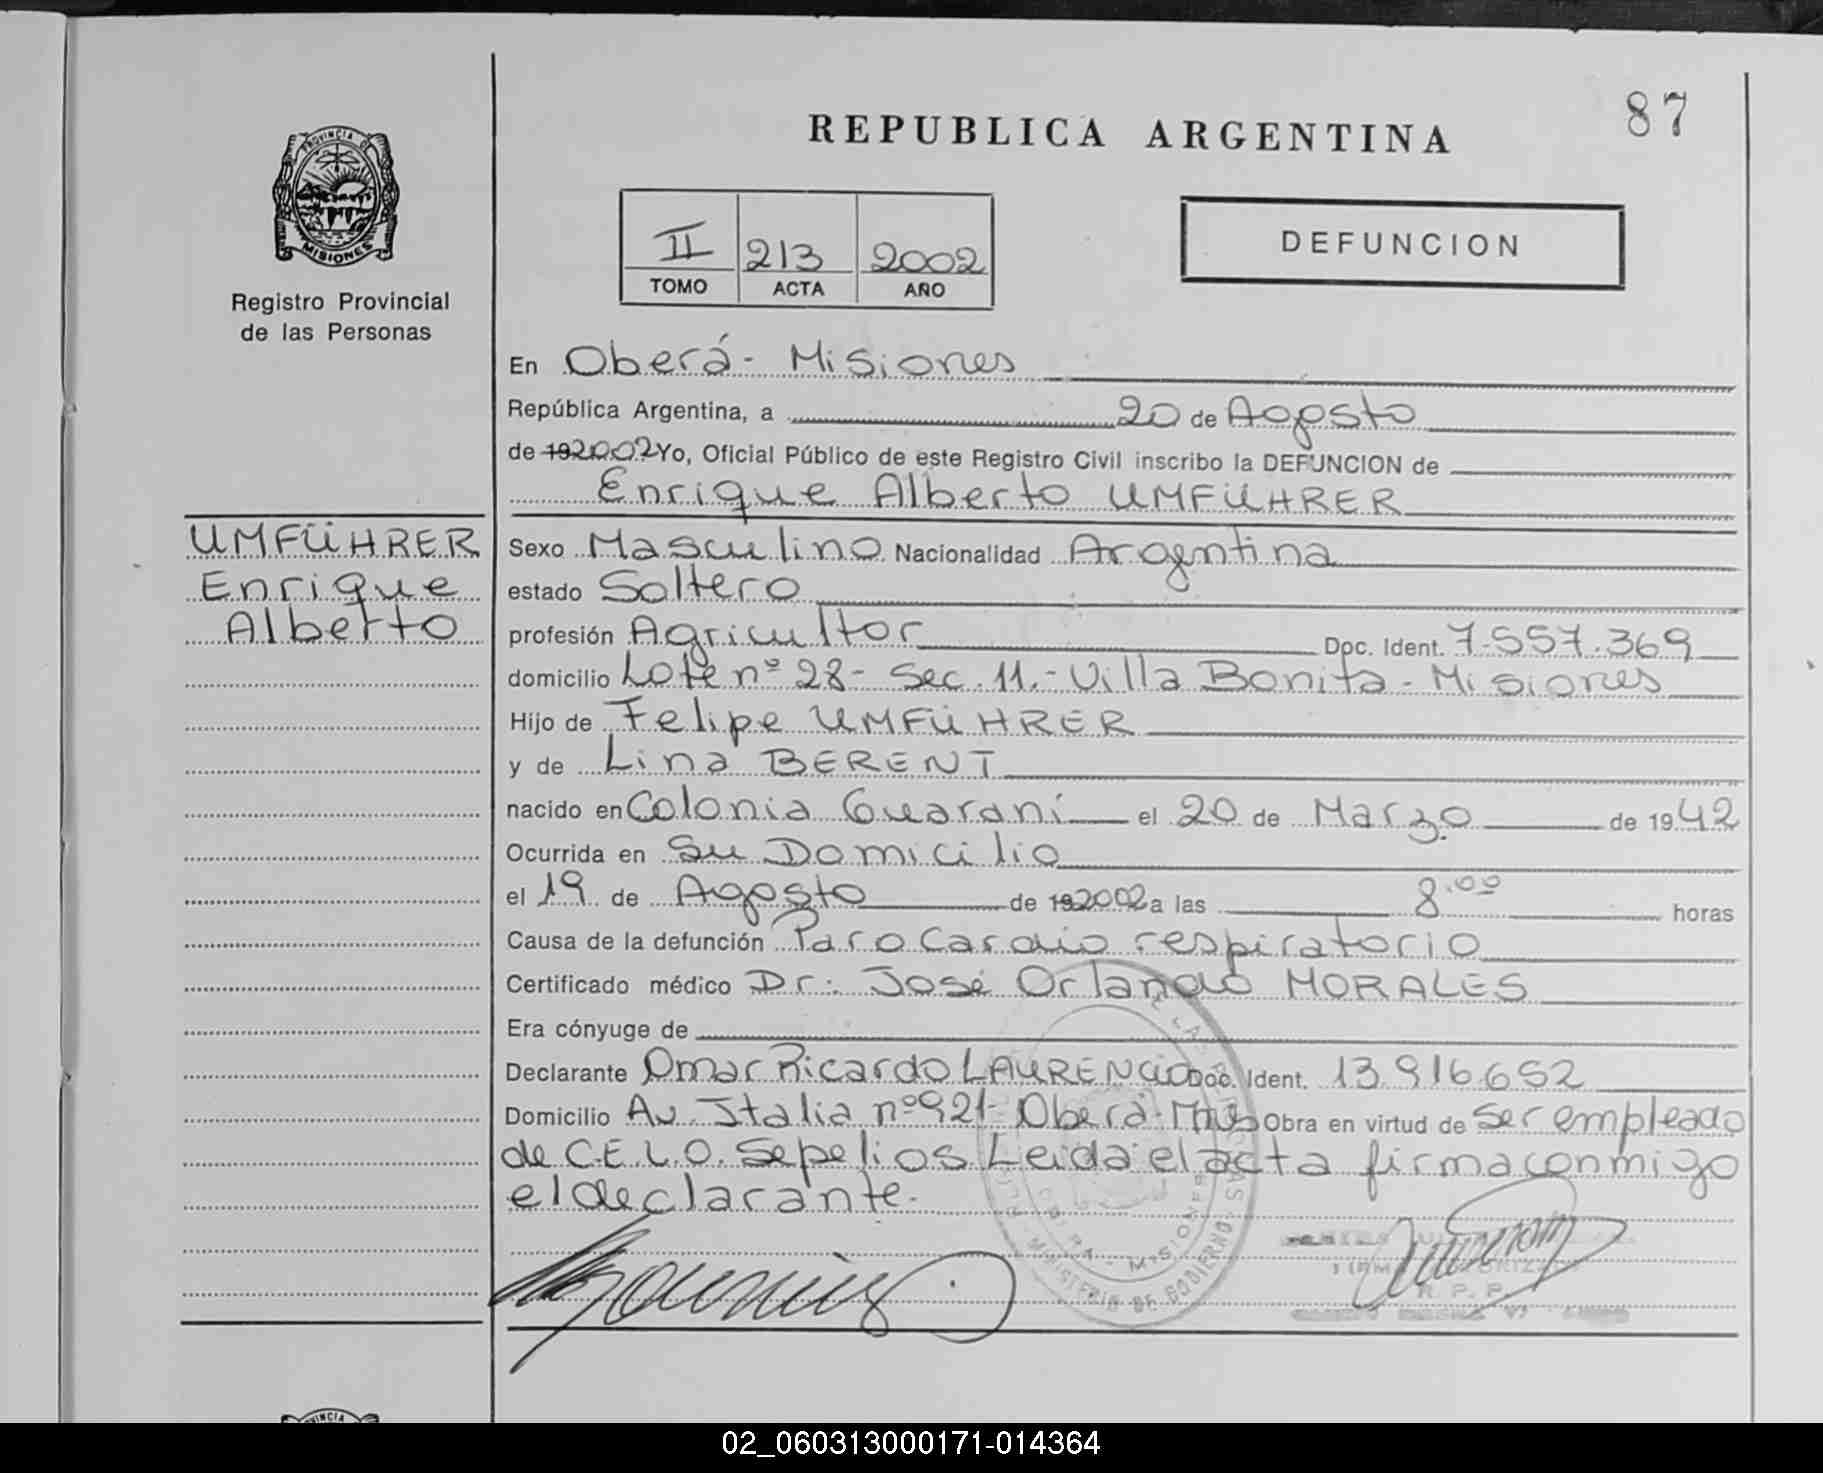 87
REPUBLICA ARGENTINA
PROVINCIA DE
MISIONES
Registro Provincial
de las Personas
II 213 2002
TOMO ACTA AÑO
DEFUNCION
En Oberá - Misiones
República Argentina, a 20 de Agosto
de 192002 Yo, Oficial Público de este Registro Civil inscribo la DEFUNCION de
Enrique Alberto UMFÜHRER
UMFÜHRER
Enrique
Alberto
Sexo Masculino Nacionalidad Argentina
estado Soltero
profesión Agricultor Doc. Ident. 7.557.369
domicilio Lote nº 28 - Sec. 11.- Villa Bonita - Misiones
Hijo de Felipe UMFÜHRER
y de Lina BERENT
nacido en Colonia Guaraní el 20 de Marzo de 1942
Ocurrida en Su Domicilio
el 19 de Agosto de 192002 a las 8.00 horas
Causa de la defunción Paro Cardio respiratorio
Certificado médico Dr. José Orlando MORALES
Era cónyuge de
Declarante Omar Ricardo LAURENCIO Doc. Ident. 13.916.652
Domicilio Av. Italia nº 921 - Oberá - Mnes Obra en virtud de ser empleado
de C.E.L.O. Sepelios Leida el acta firma conmigo
el declarante.
MINISTERIO DE GOBIERNO
MISIONES
R. P. P.
02_060313000171-014364